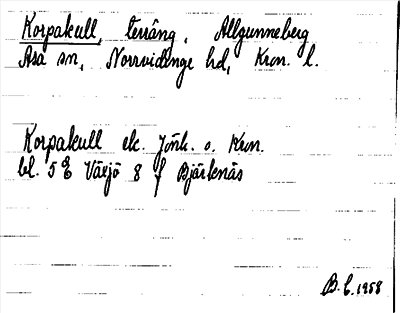 Korpakull, terräng, Allgunneberg
Asa sn, Norrvidinge hd, Kron. l.
Korpakull ek. Jönk. o. Kron.
bl. 5 E Växjö 8 f Bjärknäs
B. E. 1958